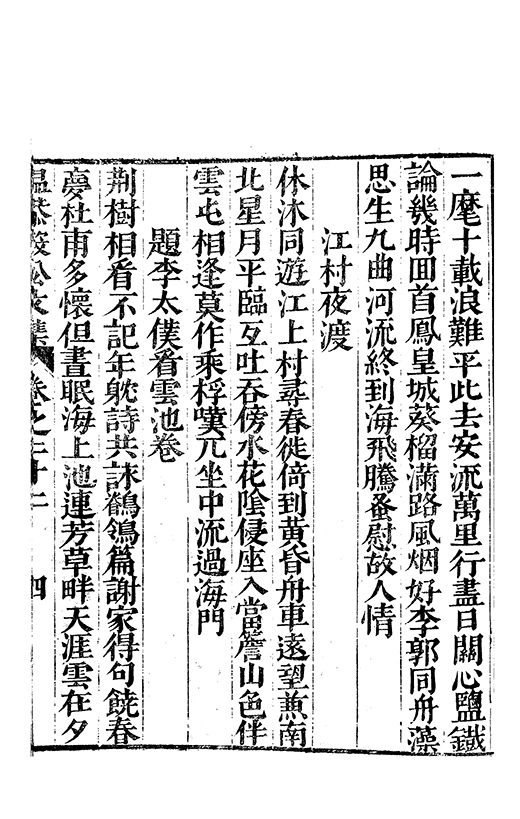 一麾十載浪難平此去安流萬里行盡日關心鹽鐵
論幾時囬首鳳皇城葵榴滿路風烟好李郭同舟藻
思生九曲河流終到海飛騰蚤慰故人情
江村夜渡
休沐同遊江上村尋春徙倚到黃昏舟車遠望兼南
北星月平臨互吐吞傍水花陰侵座入當簷山色伴
雲屯相逢莫作乘桴嘆兀坐中流過海門
題李太僕看雲池卷
荆樹相看不記年躭詩共誄鶺鴒篇謝家得句饒春
夢杜甫多懷但晝眠海上池連芳草畔天涯雲在夕
溫恭毅公文集 卷之二十二 四